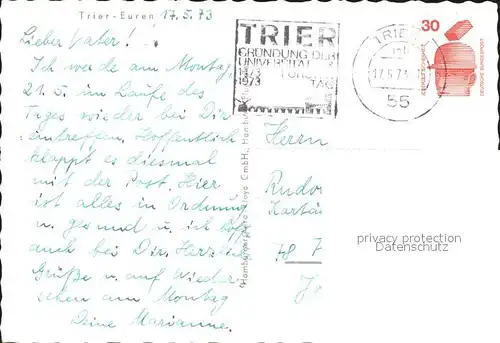 Trier-Euren 17.5.73
Lieber Vater!
Ich werde am Montag,
21.5. im Laufe des
Tages wieder bei Dir
eintreffen. Hoffentlich
klappt es diesmal
mit der Post. Hier
ist alles in Ordnung
u. gesund u. ich hoff
auch bei Dir. Herzlich
Grüße u. auf Wieder-
sehen am Montag
Deine Marianne.
TRIER
GRÜNDUNG DER
UNIVERSITÄT
1473
1973
TAG
TRIER
17.5.73
55
30
DEUTSCHE BUNDESPOST
Herrn
78
privacy protection
Datenschutz